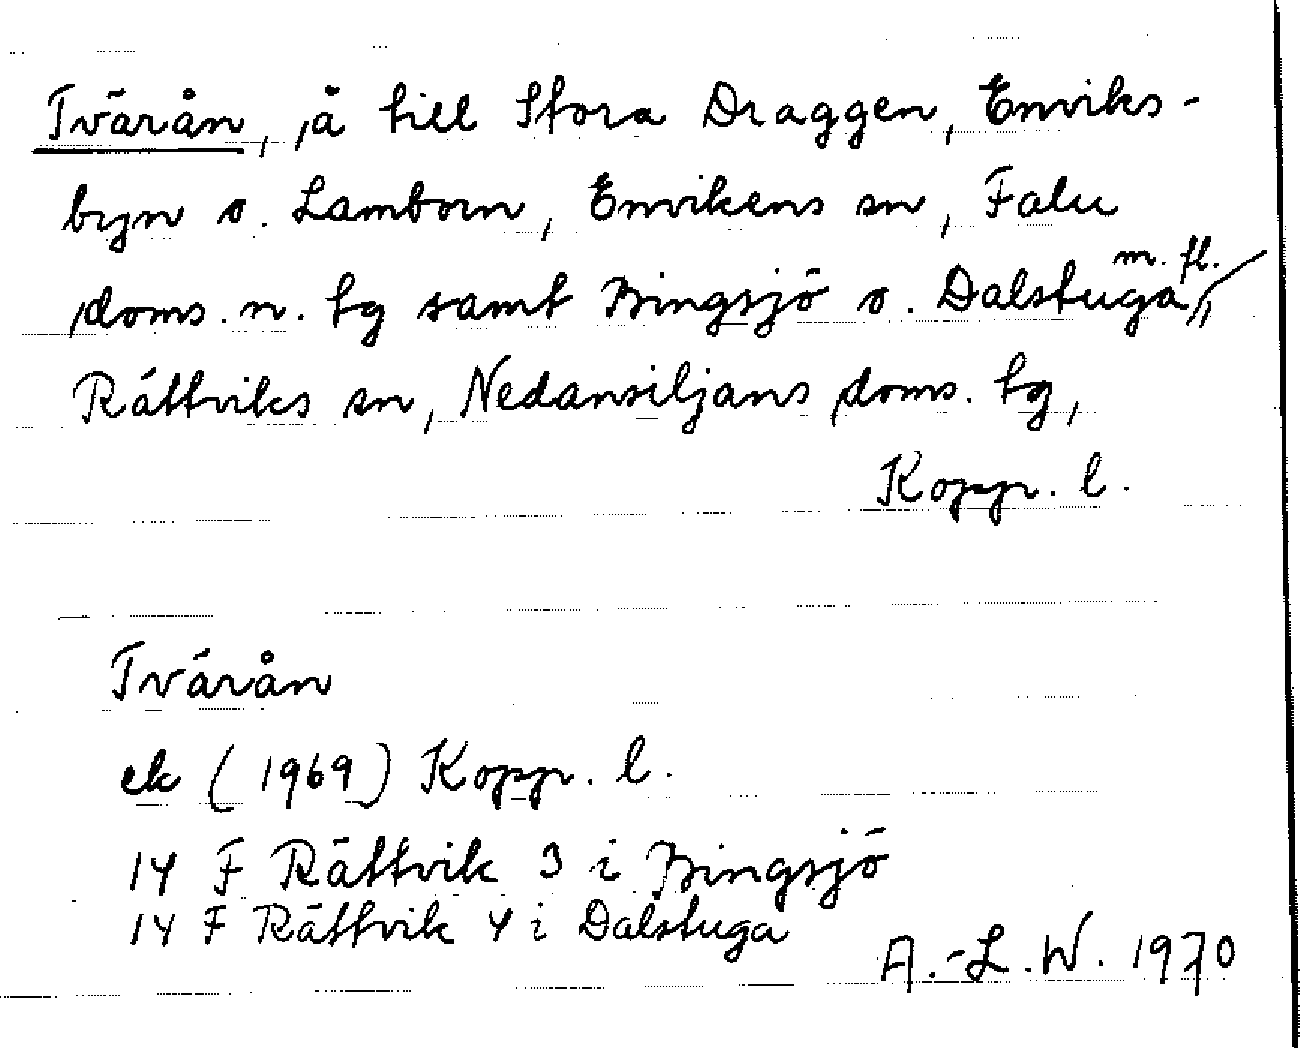 Tvärån, å till Stora Draggen, Enviks-
byn o. Lamborn, Envikens sn, Falu
doms. n. tg samt Bingsjö o. Dalstuga m. fl.,
Rättviks sn, Nedansiljans doms. tg,
Kopp. l.
Tvärån
ek (1969) Kopp. l.
14 F Rättvik 3 i Bingsjö
14 F Rättvik 4 i Dalstuga
A.-L. W. 1970